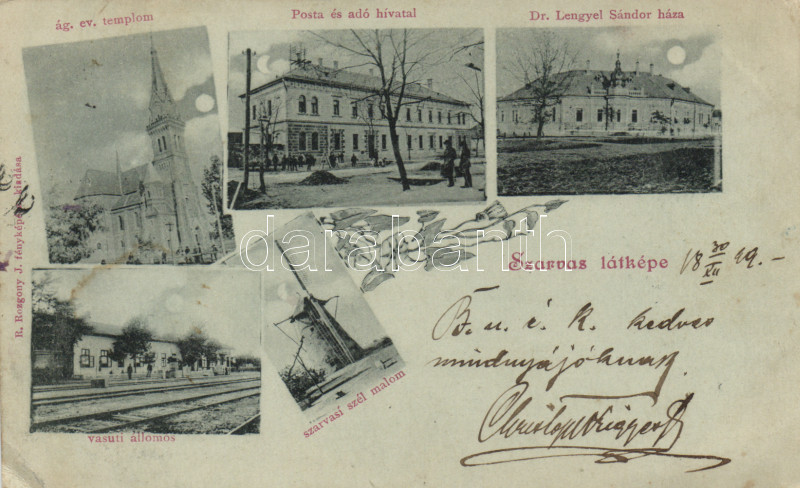 ág. ev. templom
Posta és adó hivatal
Dr. Lengyel Sándor háza
R. Rozgony J. fényképész kiadása
darabanth
Szarvas látképe 18 30/XII 99.-
B. u. é. k. kedves
mindnyájóknak
szarvasi szél malom
vasuti állomos